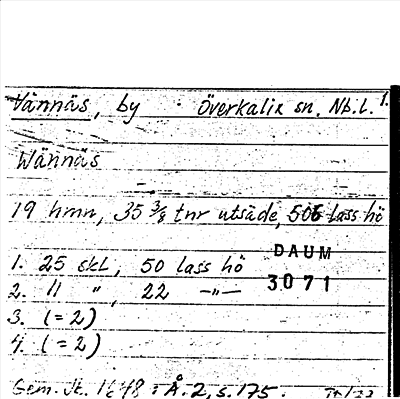 Vännäs, by Överkalix sn. Nb.l. 1.
Wännäs
19 hmn, 35 3/8 tnr utsäde, 506 lass hö
1. 25 skl, 50 lass hö
DAUM
2. 11 " , 22 —"—
3071
3. (= 2)
4. (= 2)
Gem. Jb. 1648 : Å. 2, s. 175.